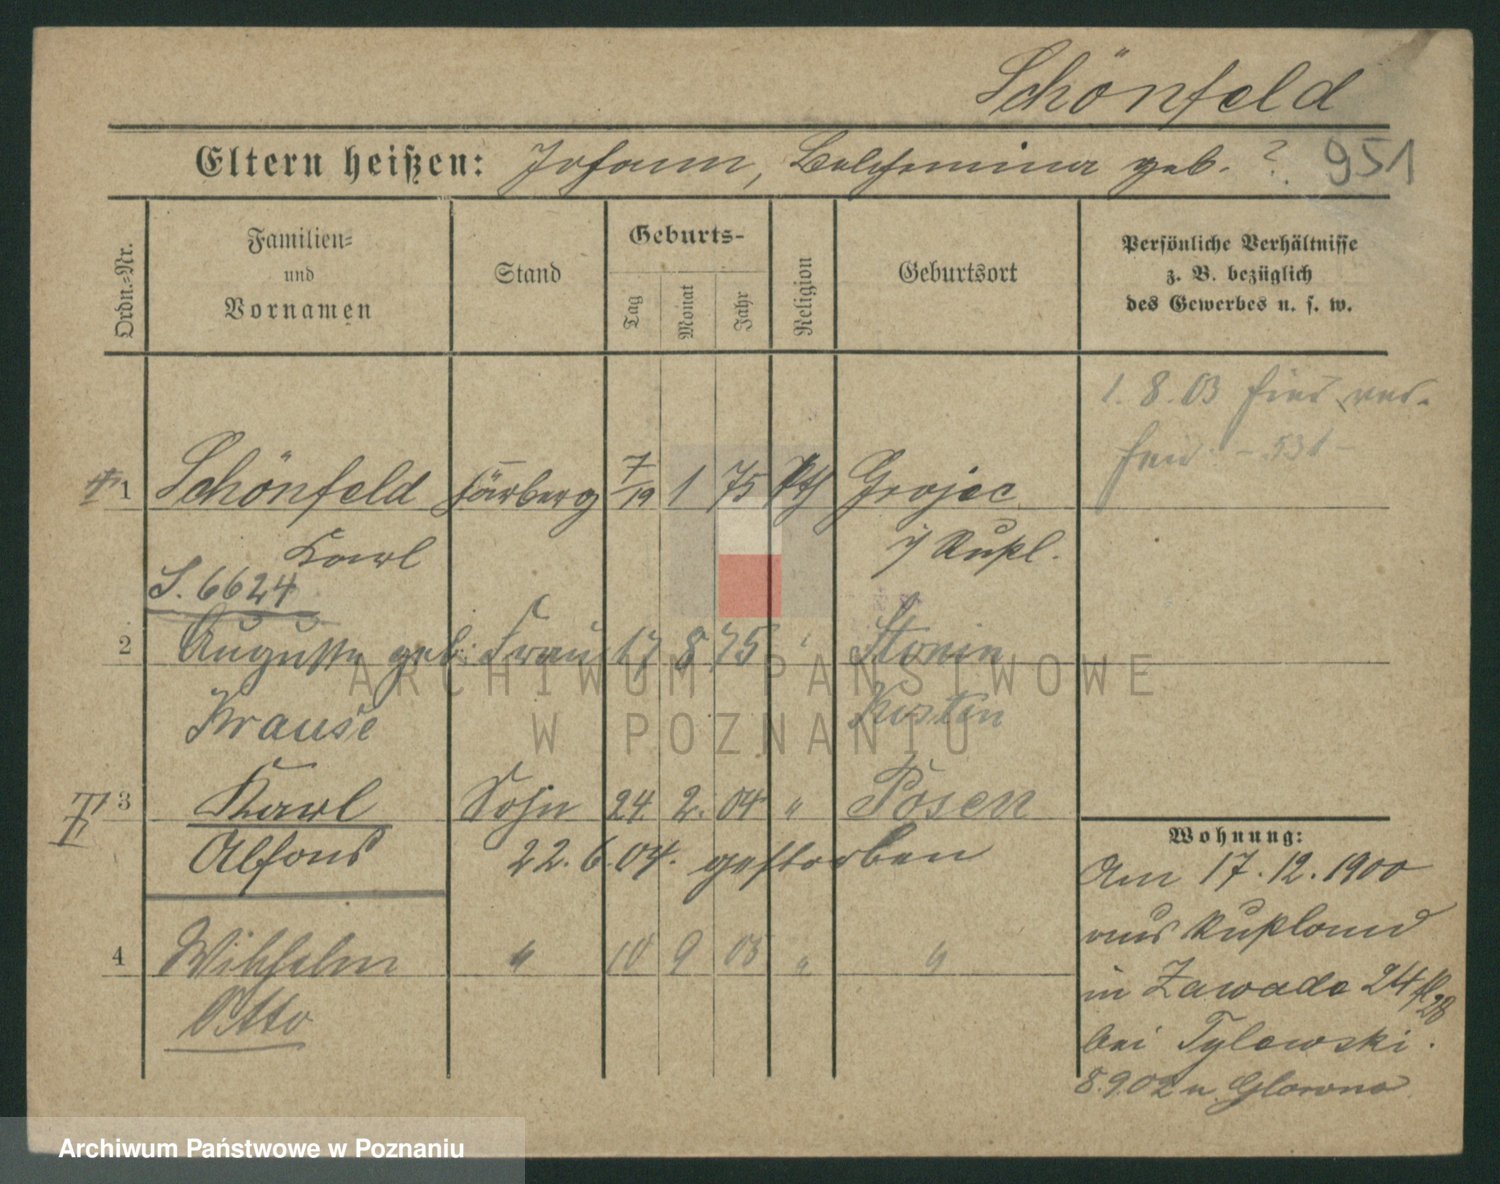 Schönfeld
Eltern heißen: Johann, geb. ?
951
Ordn.-Nr.
Familien-
und
Vornamen
Stand
Geburts-
Tag
Monat
Jahr
Religion
Geburtsort
Persönliche Verhältnisse
z. B. bezüglich
des Gewerbes u. s. w.
1. 8. 03
1 Schönfeld 7/19 1 75 Kth Grojec
Karl i/ Rußl.
S. 6624
2 Auguste geb. Frau 17 8 75 "
Krause Kosten
3 Karl Sohn 24 2. 04 " Posen
Alfons 22. 6. 04. gestorben
4 Wilhelm " 10 9 05 " "
Otto
Wohnung:
Am 17. 12. 1900
aus Rußland
in Zawade 24
bei Tylewski.
8.9.02 n. Glowno
ARCHIWUM PAŃSTWOWE
W POZNANIU
Archiwum Państwowe w Poznaniu